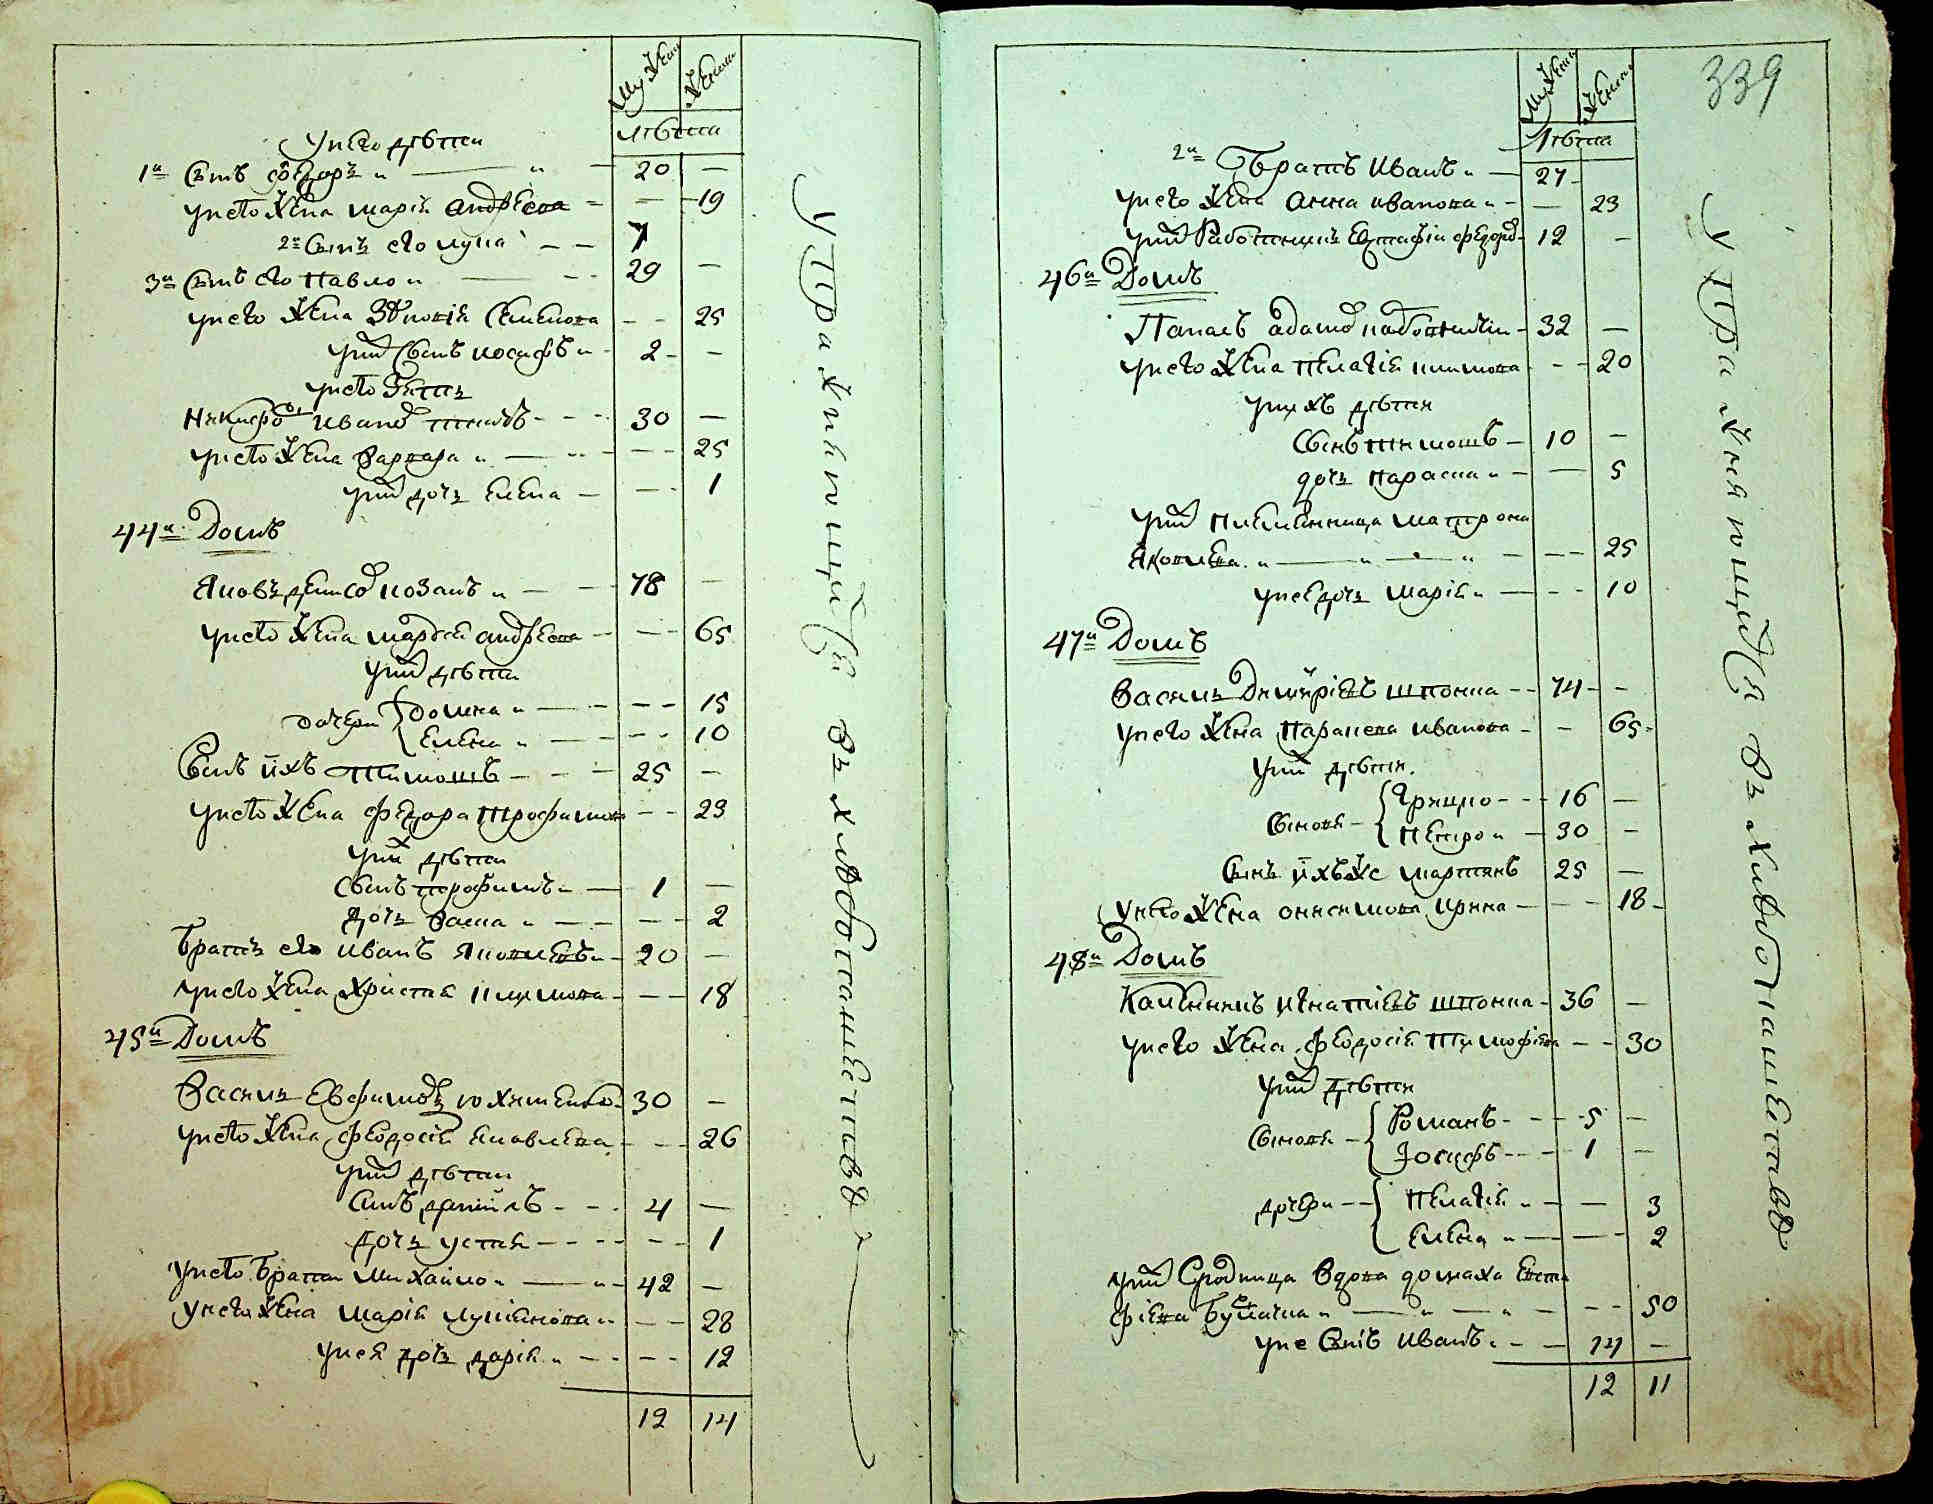 Мужеск Женск
Лѣта
У него дѣти
1й Сынъ Федоръ 20 —
У него жена Марія Андреева — 19
2й Сынъ его Лука 7
3й Сынъ его Павло 29 —
У него жена Зѣновія Семенова — 25
У них Сынъ Иосифъ 2 —
У него Зять
Никифор Иванов 30 —
У него жена Варвара — 25
У них дочь Елена — 1
44й Домъ
Яковъ Денисов Козакъ 78 —
У него жена Марфа Андреева — 65
У них дѣти
дочери Домна — 15
Елена — 10
Сынъ ихъ Тимошъ 25 —
У него жена Федора Трофимова — 23
У них дѣти
Сынъ Трофимъ 1 —
Дочь Васса — 2
Братъ его Иванъ Яковлевъ 20 —
У него жена Христя Климова — 18
45й Домъ
Василь Евфимовъ Юхименко 30 —
У него жена Феодосія Яковлева — 26
У них дѣти
Сынъ Даніилъ 4 —
Дочь Устія — 1
У него Братъ Михайло 42 —
У него жена Марія Лукіянова — 28
У нея дочь Дарія — 12
12 14
У Пражниющися въ хлѣбопашествѣ
339
Мужеск Женск
Лѣта
2й Братъ Иванъ 27
У него жена Анна Иванова — 23
У них Работникъ Евтафій Федоров 12 —
46й Домъ
Панасъ Адамов 32 —
У него жена Пелагія Климова — 20
У них дѣти
Сынъ Тимошъ 10 —
дочь Параска — 5
У них племѣнница Матрона
Яковлева — 25
У нея дочь Марія — 10
47й Домъ
Василь Дмитріевъ Шпонка 74 —
У него жена Параскева Иванова — 65
У них дѣти
Сыновя Грицко 16 —
Петро 30 —
Сынъ ихъ же Мартинъ 25 —
У него жена Онисимова Ирина — 18
48й Домъ
Калѣникъ Игнатіевъ Шпонка 36 —
У него жена Феодосія Тимофіева — 30
У них дѣти
Сыновя Романъ 5 —
Іосифъ 1 —
дочери Пелагія — 3
Елена — 2
У них Сродница вдова Домаха Евста
фіева — 50
У нее Сынъ Иванъ 14 —
12 11
У Пражниющися въ хлѣбопашествѣ